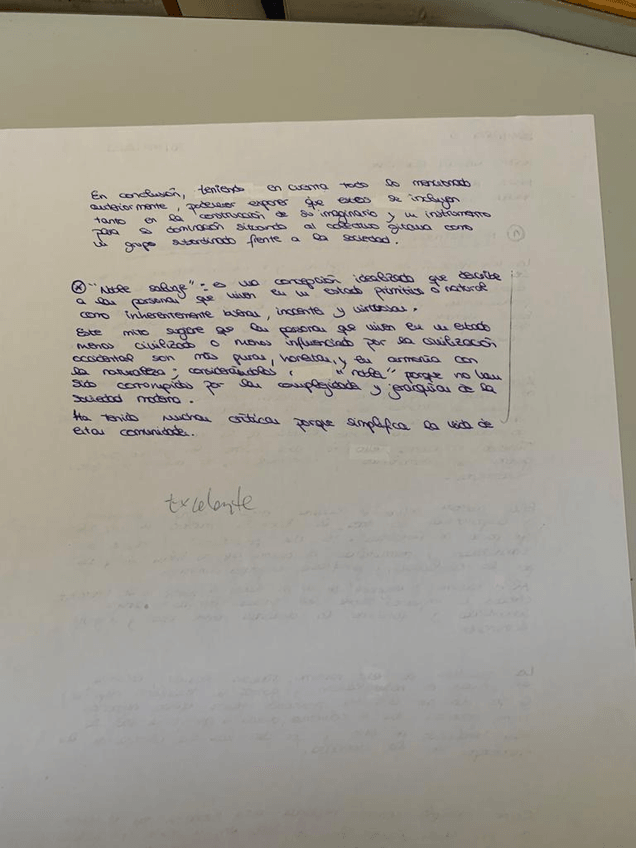 En conclusión, teniendo en cuenta todo lo mencionado
anteriormente, podemos exponer que se incluyen
tanto en la construcción de su imaginario y un instrumento
para su dominación situando al colectivo gitano como
un grupo subordinado frente a la sociedad.
* "Noble salvaje": es una concepción idealizada que describe
a las personas que viven en un estado primitivo o natural
como inherentemente buenas, inocentes y virtuosas.
Este mito sugiere que las personas que viven en un estado
menos civilizado o menos influenciado por la civilización
occidental son más puras, honestas, y en armonía con
la naturaleza; considerándolas "nobles" porque no han
sido corrompidos por las complejidades y jerarquías de la
sociedad moderna.
Ha tenido muchas críticas porque simplifica la vida de
estas comunidades.
Excelente